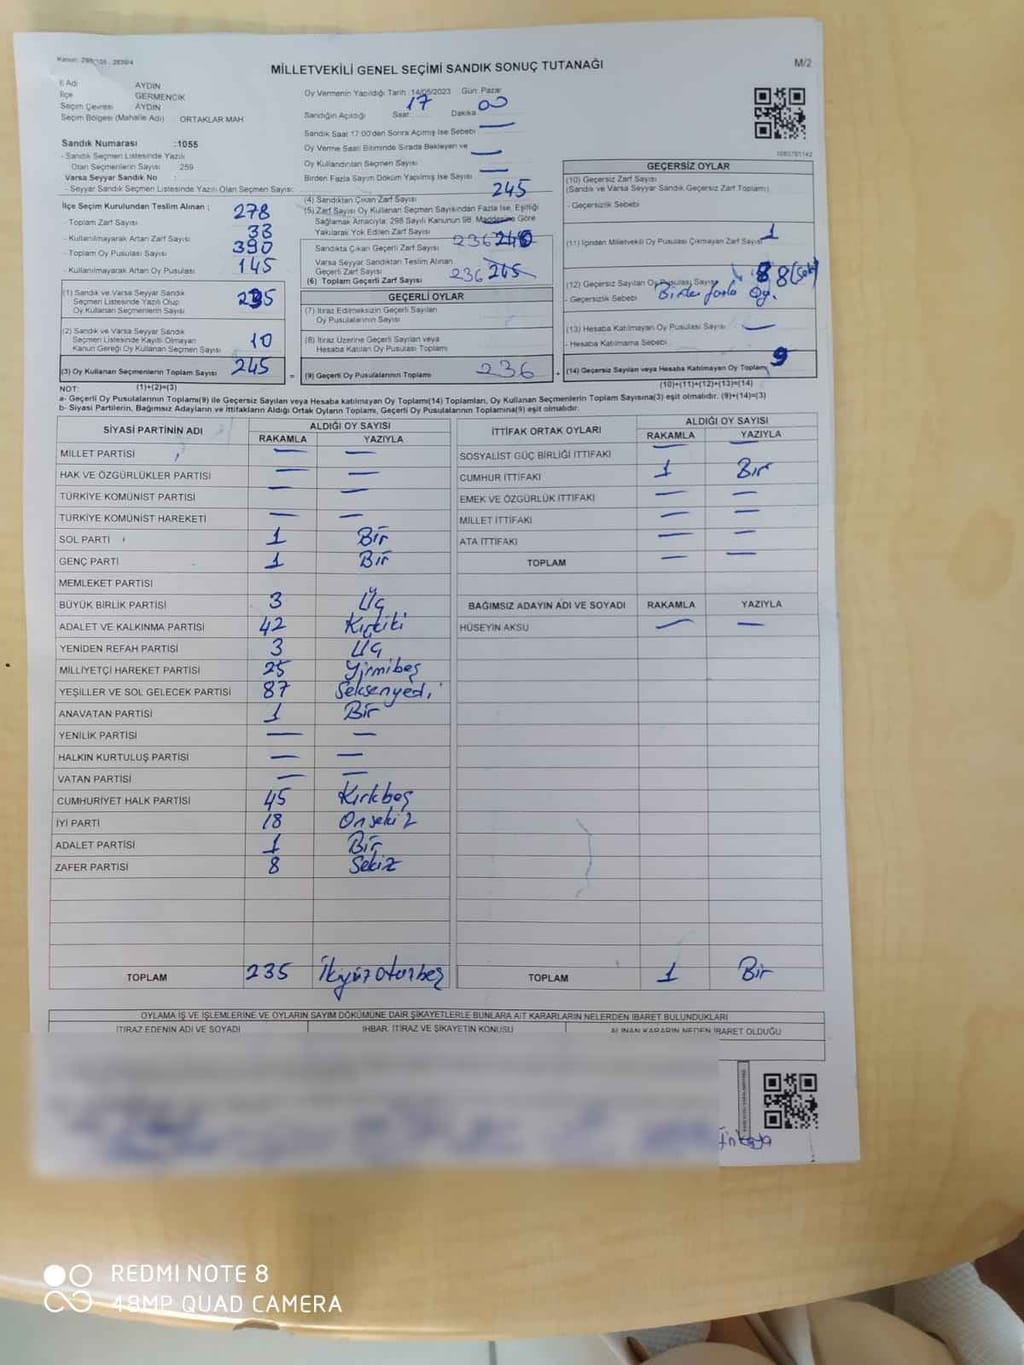 Kanun: 298/105 , 2839/4
MİLLETVEKİLİ GENEL SEÇİMİ SANDIK SONUÇ TUTANAĞI
M/2
İl Adı AYDIN
İlçe GERMENCİK
Seçim Çevresi AYDIN
Seçim Bölgesi (Mahalle Adı) : ORTAKLAR MAH.
Oy Vermenin Yapıldığı Tarih 14/05/2023 Gün: Pazar
Sandığın Açıldığı Saat 17 Dakika 00
Sandık Saat 17:00'den Sonra Açılmış İse Sebebi —
Oy Verme Saati Bitiminde Sırada Bekleyen ve
Oy Kullandırılan Seçmen Sayısı —
Birden Fazla Sayım Döküm Yapılmış İse Sayısı —
Sandık Numarası :1055
- Sandık Seçmen Listesinde Yazılı
Olan Seçmenlerin Sayısı : 259
Varsa Seyyar Sandık No :
- Seyyar Sandık Seçmen Listesinde Yazılı Olan Seçmen Sayısı:
İlçe Seçim Kurulundan Teslim Alınan :
- Toplam Zarf Sayısı 278
- Kullanılmayarak Artan Zarf Sayısı 33
- Toplam Oy Pusulası Sayısı 390
- Kullanılmayarak Artan Oy Pusulası 145
(1) Sandık ve Varsa Seyyar Sandık
Seçmen Listesinde Yazılı Olup
Oy Kullanan Seçmen Sayısı 235
(2) Sandık ve Varsa Seyyar Sandık
Seçmen Listesinde Kayıtlı Olmayan
Kanun Gereği Oy Kullanan Seçmen Sayısı 10
(3) Oy Kullanan Seçmenlerin Toplam Sayısı 245
(1)+(2)=(3)
(4) Sandıktan Çıkan Zarf Sayısı 245
(5) Zarf Sayısı Oy Kullanan Seçmen Sayısından Fazla İse, Eşitliği
Sağlamak Amacıyla, 298 Sayılı Kanunun 98. Maddesine Göre
Yakılarak Yok Edilen Zarf Sayısı —
Sandıkta Çıkan Geçerli Zarf Sayısı 236
Varsa Seyyar Sandıktan Teslim Alınan
Geçerli Zarf Sayısı
(6) Toplam Geçerli Zarf Sayısı 236 245
GEÇERLİ OYLAR
(7) İtiraz Edilmeksizin Geçerli Sayılan
Oy Pusulalarının Sayısı
(8) İtiraz Üzerine Geçerli Sayılan veya
Hesaba Katılan Oy Pusulası Toplamı
= (9) Geçerli Oy Pusulalarının Toplamı 236 +
GEÇERSİZ OYLAR
(10) Geçersiz Zarf Sayısı
(Sandık ve Varsa Seyyar Sandık Geçersiz Zarf Toplamı)
- Geçersizlik Sebebi
(11) İçinden Milletvekili Oy Pusulası Çıkmayan Zarf Sayısı 1
(12) Geçersiz Sayılan Oy Pusulası Sayısı 8 8
- Geçersizlik Sebebi Birden fazla Oy.
(13) Hesaba Katılmayan Oy Pusulası Sayısı —
- Hesaba Katılmama Sebebi
(14) Geçersiz Sayılan veya Hesaba Katılmayan Oy Toplamı 9
(10)+(11)+(12)+(13)=(14)
NOT:
a- Geçerli Oy Pusulalarının Toplamı(9) ile Geçersiz Sayılan veya Hesaba katılmayan Oy Toplamı(14) Toplamları, Oy Kullanan Seçmenlerin Toplam Sayısına(3) eşit olmalıdır. (9)+(14)=(3)
b- Siyasi Partilerin, Bağımsız Adayların ve İttifakların Aldığı Ortak Oyların Toplamı, Geçerli Oy Pusulalarının Toplamına(9) eşit olmalıdır.
SİYASİ PARTİNİN ADI ALDIĞI OY SAYISI
RAKAMLA YAZIYLA
MİLLET PARTİSİ — —
HAK VE ÖZGÜRLÜKLER PARTİSİ — —
TÜRKİYE KOMÜNİST PARTİSİ — —
TÜRKİYE KOMÜNİST HAREKETİ — —
SOL PARTİ 1 Bir
GENÇ PARTİ 1 Bir
MEMLEKET PARTİSİ
BÜYÜK BİRLİK PARTİSİ 3 Üç
ADALET VE KALKINMA PARTİSİ 42 Kırkiki
YENİDEN REFAH PARTİSİ 3 Üç
MİLLİYETÇİ HAREKET PARTİSİ 25 Yirmibeş
YEŞİLLER VE SOL GELECEK PARTİSİ 87 Seksenyedi
ANAVATAN PARTİSİ 1 Bir
YENİLİK PARTİSİ — —
HALKIN KURTULUŞ PARTİSİ — —
VATAN PARTİSİ — —
CUMHURİYET HALK PARTİSİ 45 Kırkbeş
İYİ PARTİ 18 Onsekiz
ADALET PARTİSİ 1 Bir
ZAFER PARTİSİ 8 Sekiz
TOPLAM 235 İkiyüzotuzbeş
İTTİFAK ORTAK OYLARI ALDIĞI OY SAYISI
RAKAMLA YAZIYLA
SOSYALİST GÜÇ BİRLİĞİ İTTİFAKI — —
CUMHUR İTTİFAKI 1 Bir
EMEK VE ÖZGÜRLÜK İTTİFAKI — —
MİLLET İTTİFAKI — —
ATA İTTİFAKI — —
TOPLAM — —
BAĞIMSIZ ADAYIN ADI VE SOYADI RAKAMLA YAZIYLA
HÜSEYİN AKSU — —
TOPLAM 1 Bir
OYLAMA İŞ VE İŞLEMLERİNE VE OYLARIN SAYIM DÖKÜMÜNE DAİR ŞİKAYETLERLE BUNLARA AİT KARARLARIN NELERDEN İBARET BULUNDUKLARI
İTİRAZ EDENİN ADI VE SOYADI İHBAR, İTİRAZ VE ŞİKAYETİN KONUSU ALINAN KARARIN NEDEN İBARET OLDUĞU
REDMI NOTE 8
48MP QUAD CAMERA